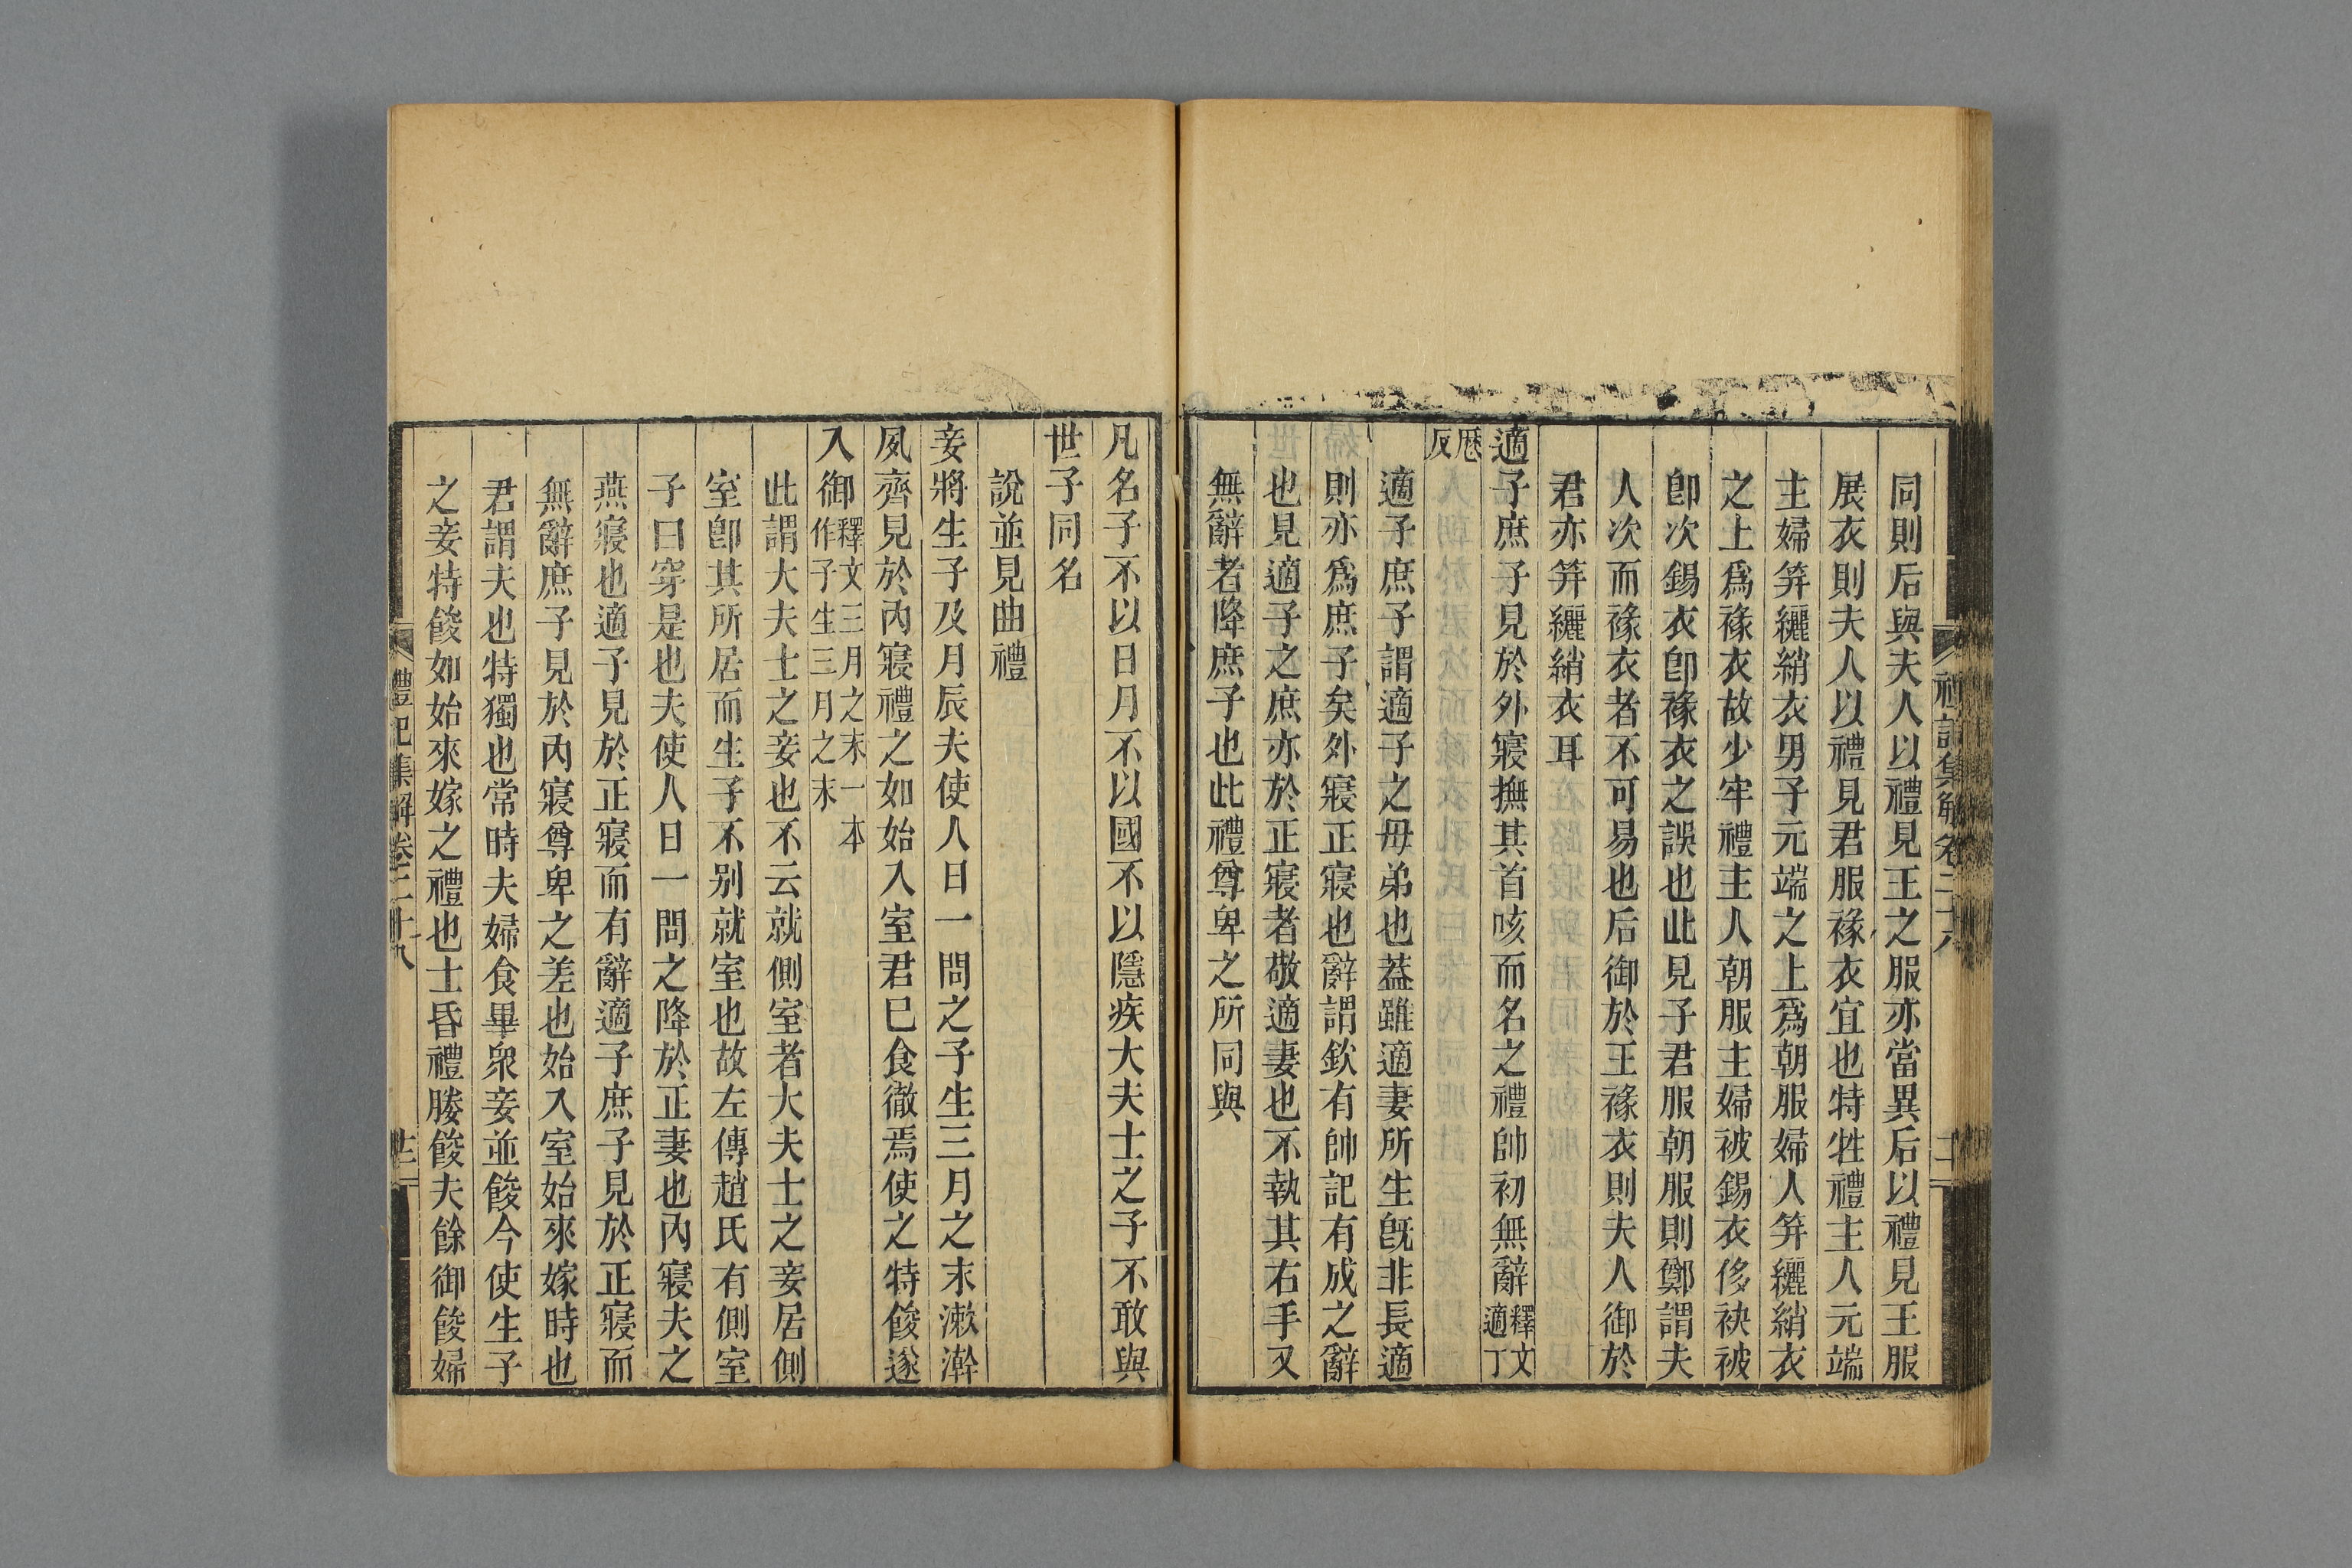 同則后與夫人以禮見王之服亦當異后以禮見王服
展衣則夫人以禮見君服褖衣宜也特牲禮主人元端
主婦笄纚綃衣男子元端之上爲朝服婦人笄纚綃衣
之上爲褖衣故少牢禮主人朝服主婦被錫衣侈袂被
卽次錫衣卽褖衣之誤也此見子君服朝服則鄭謂夫
人次而褖衣者不可易也后御於王褖衣則夫人御於
君亦笄纚綃衣耳
適子庶子見於外寢撫其首咳而名之禮帥初無辭釋文適丁
厯反
適子庶子謂適子之母弟也蓋雖適妻所生旣非長適
則亦爲庶子矣外寢正寢也辭謂欽有帥記有成之辭
也見適子之庶亦於正寢者敬適妻也不執其右手又
無辭者降庶子也此禮尊卑之所同與
凡名子不以日月不以國不以隱疾大夫士之子不敢與
世子同名
說並見曲禮
妾將生子及月辰夫使人日一問之子生三月之末漱澣
夙齊見於內寢禮之如始入室君已食徹焉使之特餕遂
入御釋文三月之末一本作子生三月之末
此謂大夫士之妾也不云就側室者大夫士之妾居側
室卽其所居而生子不別就室也故左傳趙氏有側室
子曰穿是也夫使人日一問之降於正妻也內寢夫之
燕寢也適子見於正寢而有辭適子庶子見於正寢而
無辭庶子見於內寢尊卑之差也始入室始來嫁時也
君謂夫也特獨也常時夫婦食畢衆妾並餕今使生子
之妾特餕如始來嫁之禮也士昏禮媵餕夫餘御餕婦
禮記集解卷二十八